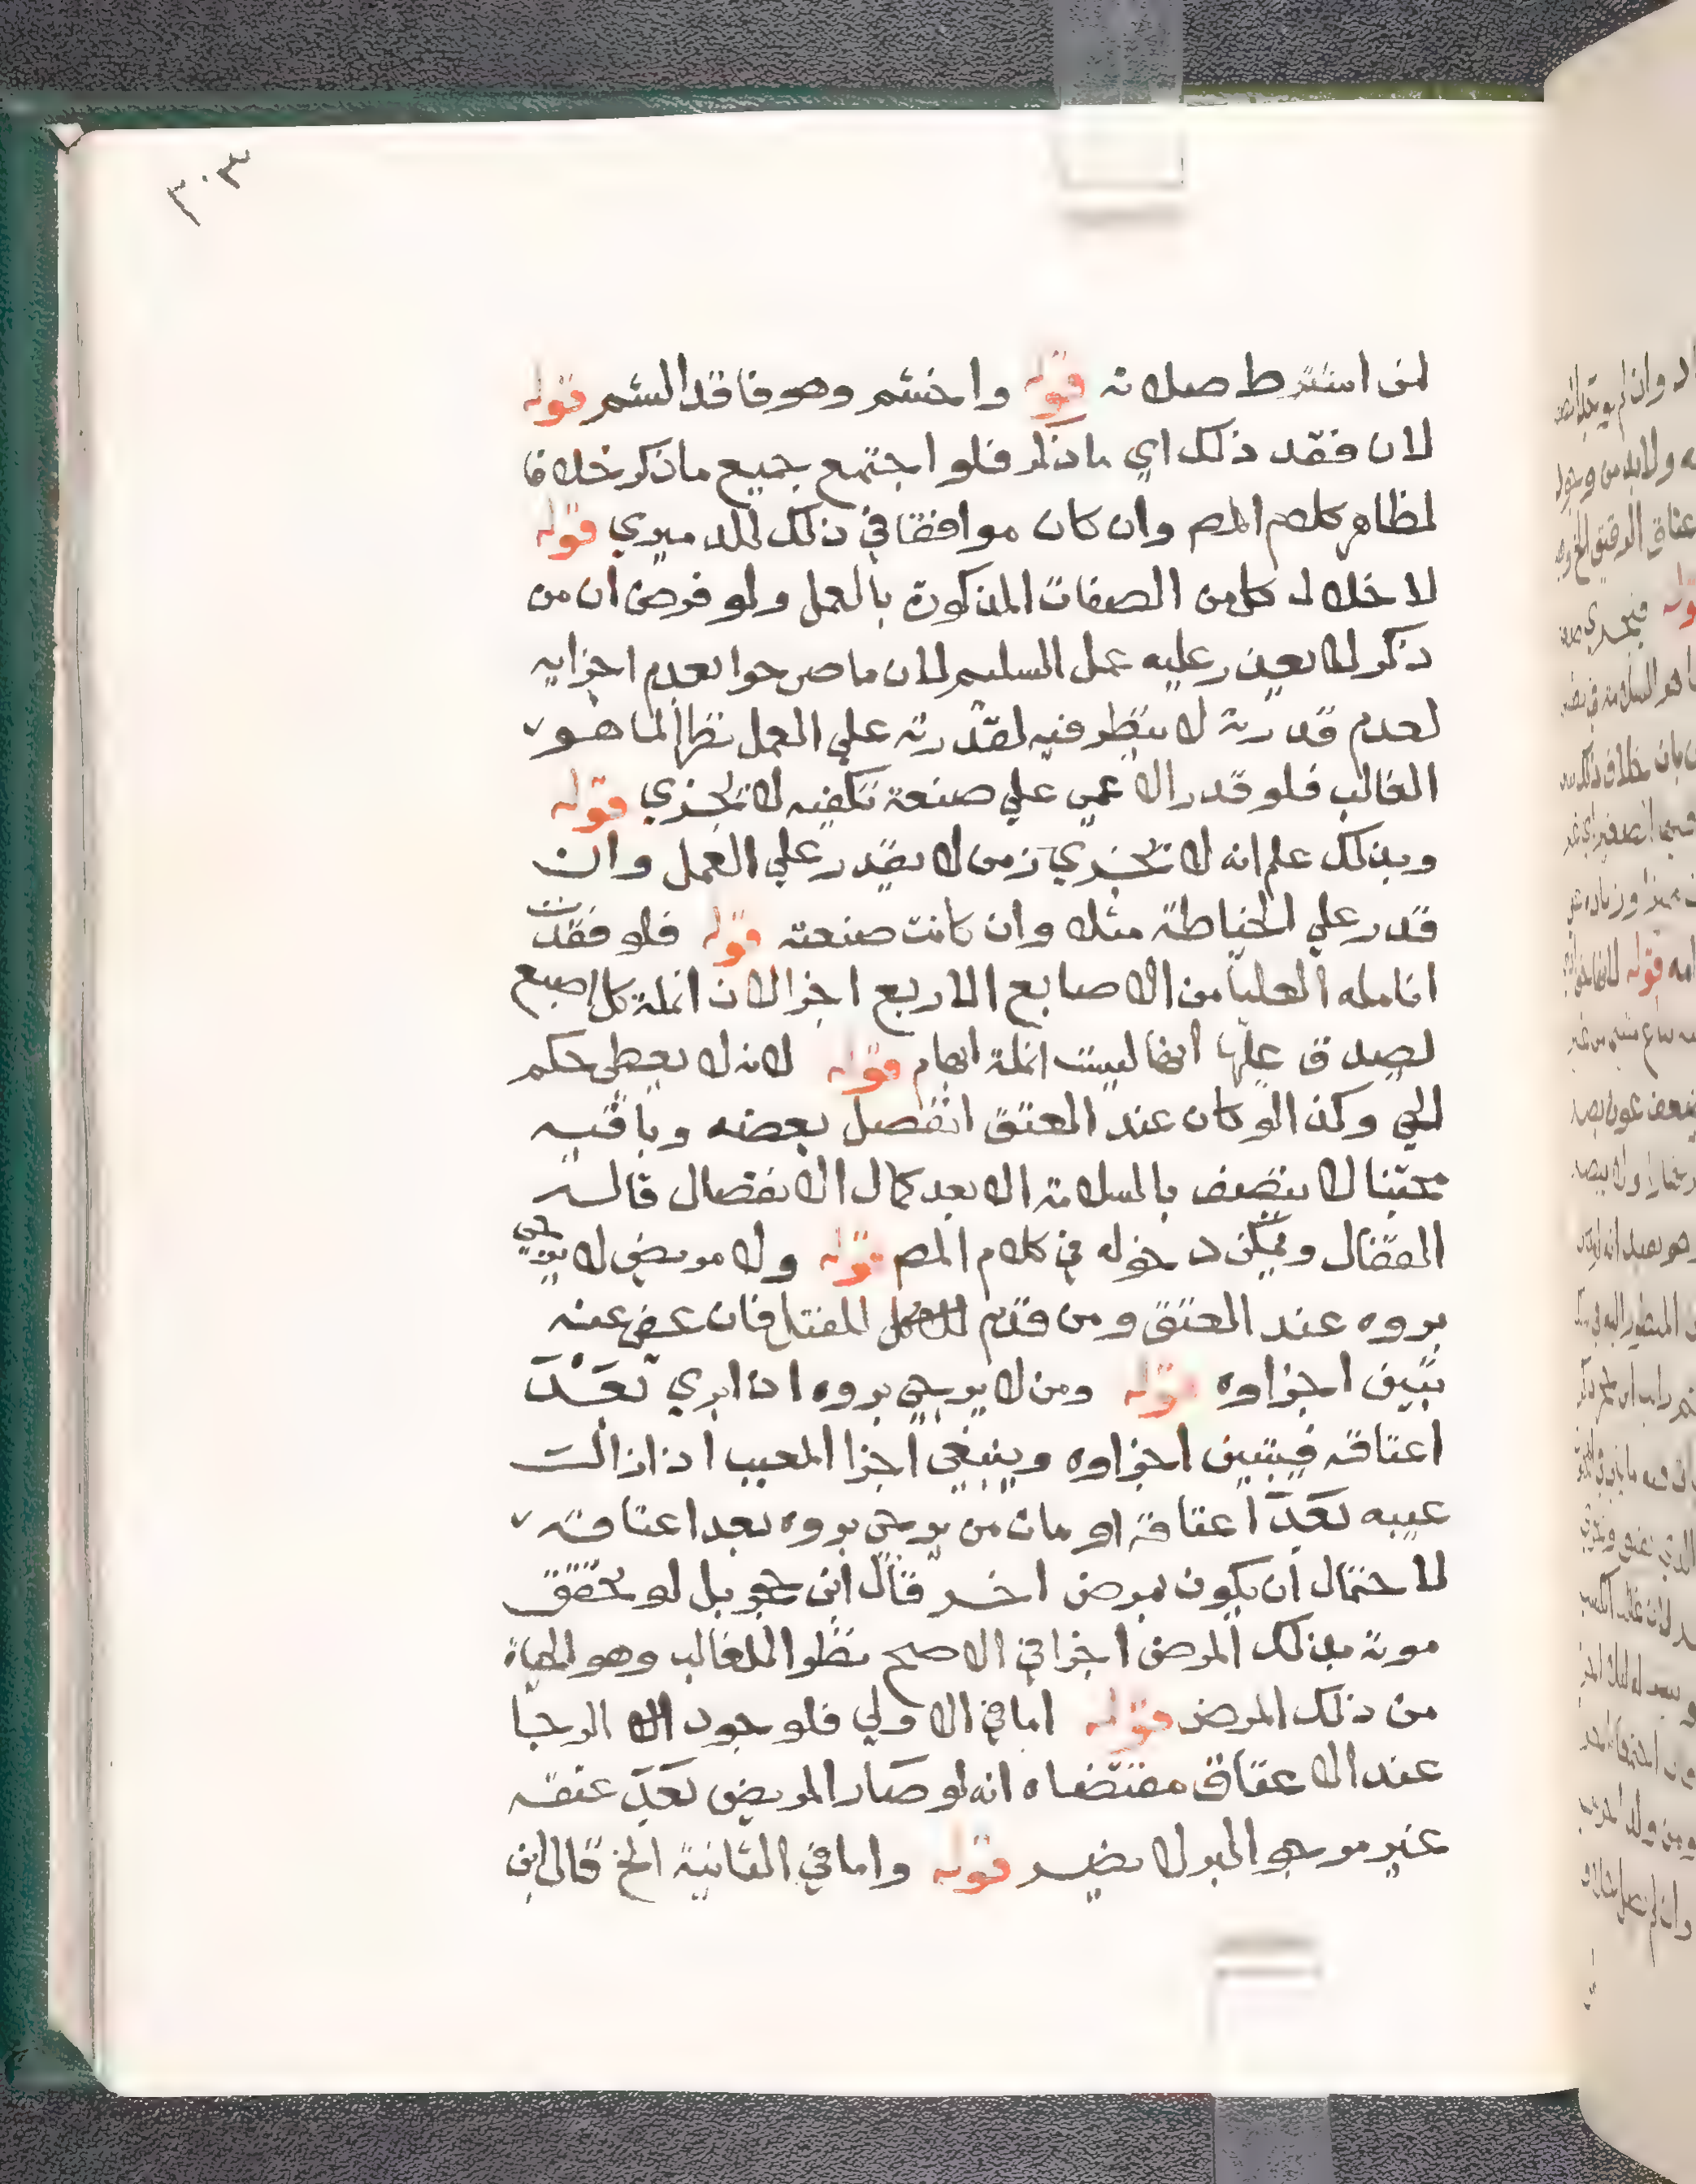 ٣٠٣
لمن اشترط صلاته قوله واخشم وهو فاقد الشم قوله
لان فقد ذلك اي ما ذكر فلو اجتمع جميع ما ذكر خلافا
لظاهر كلام المص وان كان موافقا في ذلك للدميري قوله
لا خلال كل من الصفات المذكورة بالعمل ولو فرض ان من
ذكر لا يعذر عليه عمل السليم لان ما صرحوا بعدم اجزايه
لعدم قدرته لا ينظر فيه لقدرته علي العمل نظرا لما هو
الغالب فلو قدر الاعمي علي صنعة تكفيه لا تجزي قوله
وبذلك علم انه لا تجزي زمن لا يقدر علي العمل وان
قدر علي الخياطة مثلا وان كانت صنعته قوله فلو فقدت
انامله العليا من الاصابع الاربع اجزا لان انملة كل اصبع
لصدق عليها انها ليست انملة ابهام قوله لانه لا يعطي حكم
الحي وكذا لو كان عند العتق انفصل بعضه وباقيه
مجتنا لا يتصف بالسلامة الا بعد كمال الانفصال قاله
القفال ويمكن دخوله في كلام المص قوله ولا مريض لا يرجي
بروه عند العتق ومن قدم للقتل فان عفي عنه
تبين اجزاوه قوله ومن لا يرجي بروه اذا بري بعد
اعتاقه فيتبين اجزاوه وينبغي اجزا المعيب اذا زالت
عيبه بعد اعتاقه او مات من يرجي بروه بعد اعتاقه
لاحتمال ان يكون لمرض اخر قال ابن حجر بل لو تحقق
موته بذلك المرض اجزا في الاصح نظرا للغالب وهو الحياة
من ذلك المرض قوله اما في الاولي فلوجود الرجا
عند الاعتاق مقتضاه انه لو صار المريض بعد عتقه
غير مرجو البر لا يضر قوله واما في الثانية الخ قال ابن